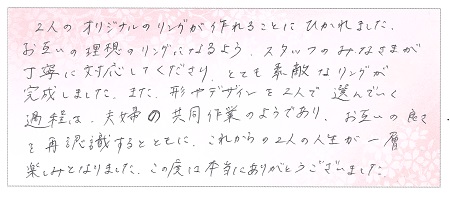 2人のオリジナルのリングが作れることにひかれました。
お互いの理想のリングになるよう、スタッフのみなさまが
丁寧に対応してくださり、とても素敵なリングが
完成しました。また、形やデザインを2人で選んでいく
過程は、夫婦の共同作業のようであり、お互いの良さ
を再認識するとともに、これからの2人の人生が一層
楽しみとなりました。この度は本当にありがとうございました。